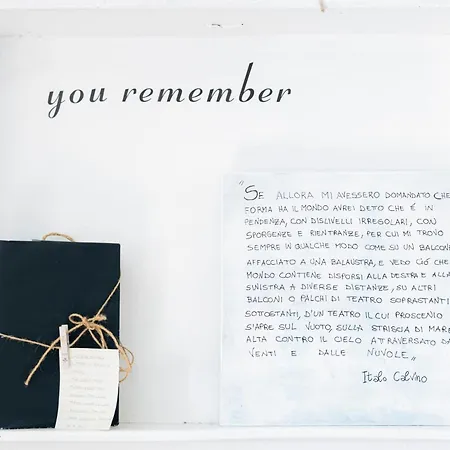 you remember
"SE ALLORA MI AVESSERO DOMANDATO CHE
FORMA HA IL MONDO AVREI DETO CHE É IN
PENDENZA, CON DISLIVELLI IRREGOLARI, CON
SPORGENZE E RIENTRANZE, PER CUI MI TROVO
SEMPRE IN QUALCHE MODO COME SU UN BALCONE
AFFACCIATO A UNA BALAUSTRA, E VEDO CIÓ CHE
MONDO CONTIENE DISPORSI ALLA DESTRA E ALLA
SINISTRA A DIVERSE DISTANZE, SU ALTRI
BALCONI O PALCHI DI TEATRO SOPRASTANTI
SOTTOSTANTI, D'UN TEATRO IL CUI PROSCENIO
S'APRE SUL VUOTO, SULLA STRISCIA DI MARE
ALTA CONTRO IL CIELO ATTRAVERSATO DA
VENTI E DALLE NUVOLE"
Italo Calvino